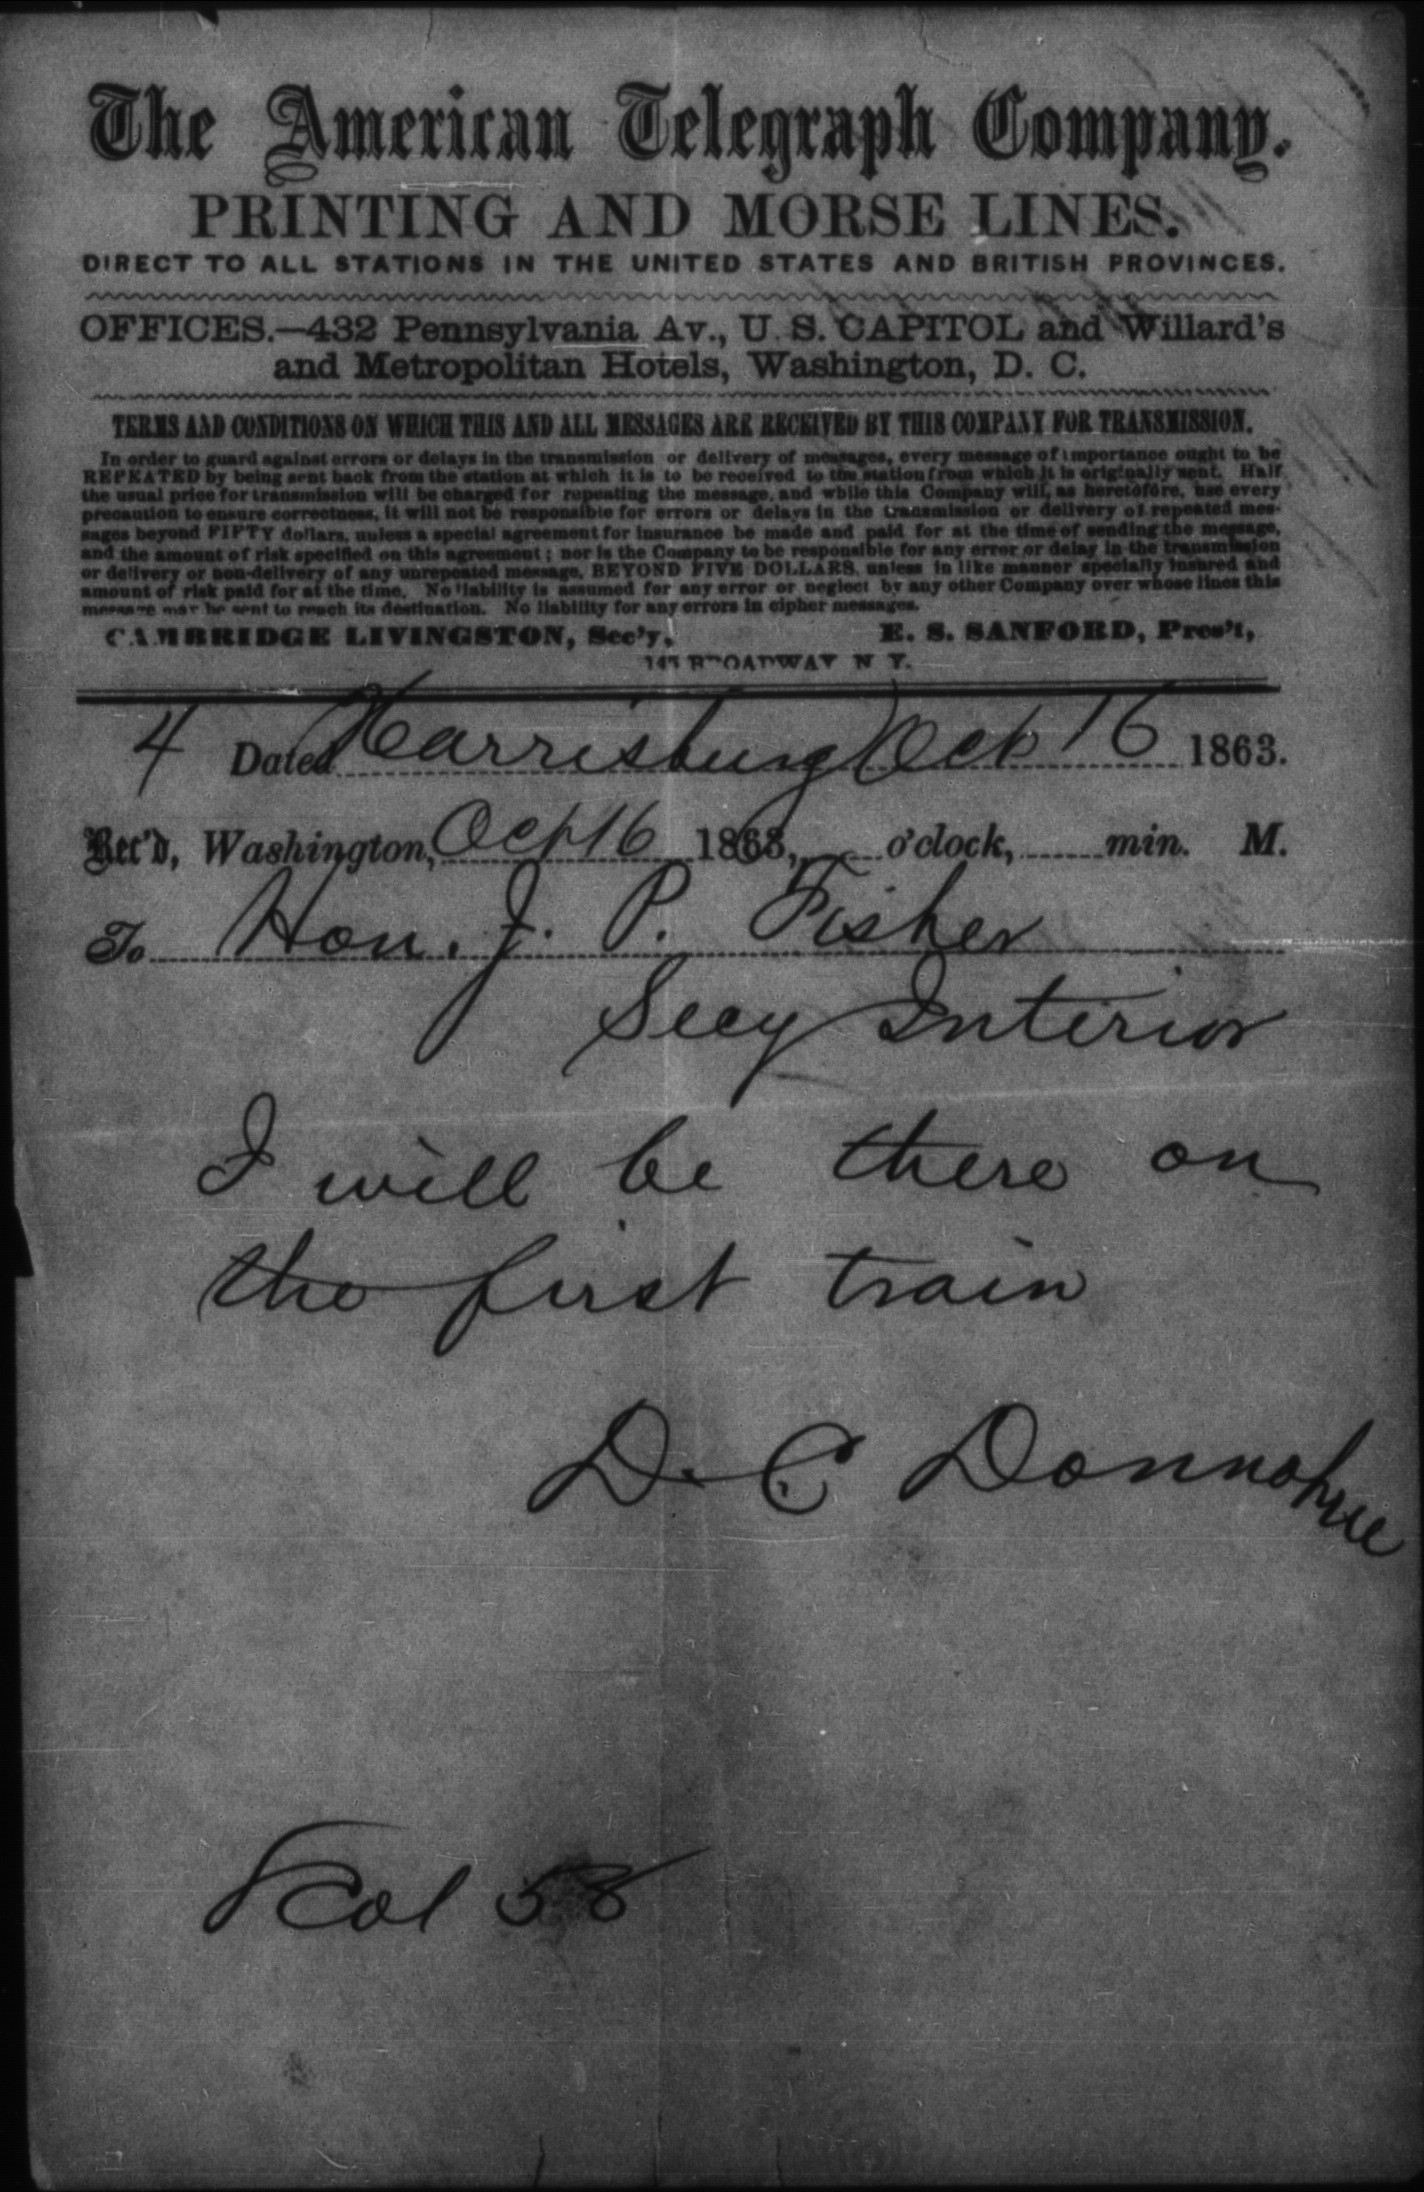 The American Telegraph Company.
PRINTING AND MORSE LINES.
DIRECT TO ALL STATIONS IN THE UNITED STATES AND BRITISH PROVINCES.
OFFICES.—432 Pennsylvania Av., U. S. CAPITOL and Willard's
and Metropolitan Hotels, Washington, D. C.
TERMS AND CONDITIONS ON WHICH THIS AND ALL MESSAGES ARE RECEIVED BY THIS COMPANY FOR TRANSMISSION.
In order to guard against errors or delays in the transmission or delivery of messages, every message of importance ought to be
REPEATED by being sent back from the station at which it is to be received to the station from which it is originally sent. Half
the usual price for transmission will be charged for repeating the message, and while this Company will, as heretofore, use every
precaution to ensure correctness, it will not be responsible for errors or delays in the transmission or delivery of repeated mes-
sages beyond FIFTY dollars, unless a special agreement for insurance be made and paid for at the time of sending the message,
and the amount of risk specified on this agreement; nor is the Company to be responsible for any error or delay in the transmission
or delivery or non-delivery of any unrepeated message, BEYOND FIVE DOLLARS, unless in like manner specially insured and
amount of risk paid for at the time. No liability is assumed for any error or neglect by any other Company over whose lines this
message may be sent to reach its destination. No liability for any errors in cipher messages.
CAMBRIDGE LIVINGSTON, Sec'y, E. S. SANFORD, Pres't,
145 BROADWAY N. Y.
4 Dated Harrisburg Oct 16 1863.
Rec'd, Washington, Oct 16 1863, o'clock, min. M.
To Hon. J. P. Fisher
Secy Interior
I will be there on
the first train
D. C Donnohue
Col 58